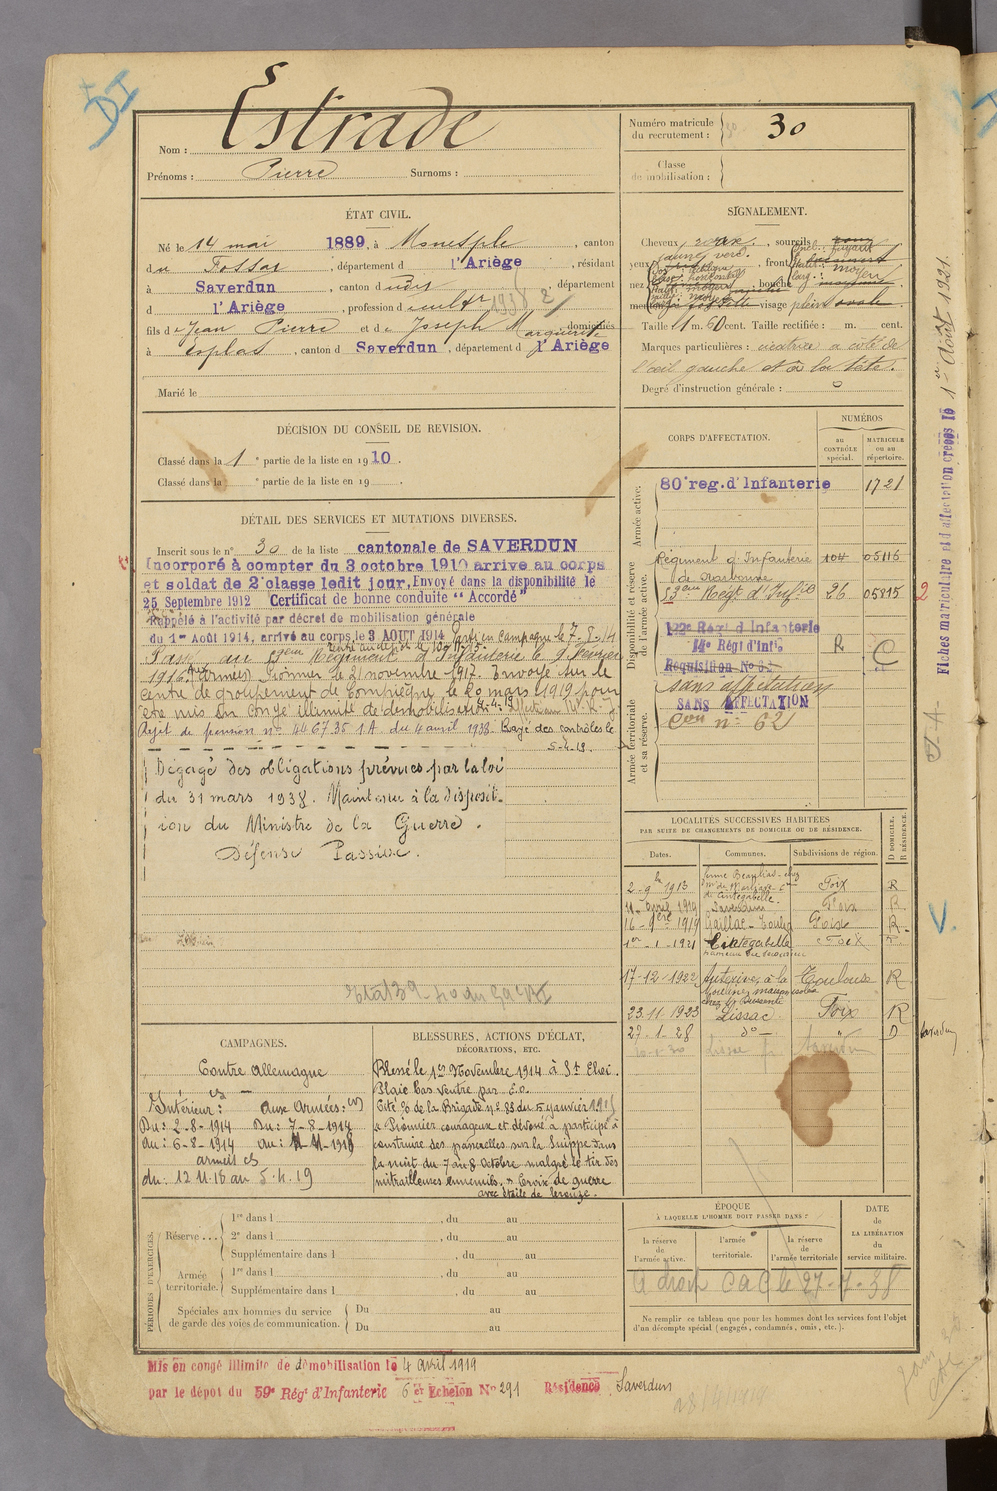 Nom : Estrade
Prénoms : Pierre Surnoms :
Numéro matricule du recrutement : 30
Classe de mobilisation :
ÉTAT CIVIL.
Né le 14 mai 1889, à Monesple, canton
du Fossat, département d l'Ariège, résidant
à Saverdun, canton d udit, département
d l'Ariège, profession d cultr
fils de Jean Pierre et de Joseph Marguerite domiciliés
à Esplas, canton d Saverdun, département d l'Ariège
Marié le
SIGNALEMENT.
Cheveux , sourcils
yeux jaune verd. , front
nez , bouche
menton , visage plein ovale
Taille 1 m. 60 cent. Taille rectifiée : m. cent.
Marques particulières : cicatrice a côté de
l'œil gauche et à la tête.
Degré d'instruction générale :
DÉCISION DU CONSEIL DE REVISION.
Classé dans la 1e partie de la liste en 1910.
Classé dans la e partie de la liste en 19 .
CORPS D'AFFECTATION.
NUMÉROS
au CONTRÔLE spécial.
MATRICULE ou au répertoire.
Armée active.
80e reg. d'Infanterie 1721
Disponibilité et réserve de l'armée active.
Régiment d'Infanterie 104 05116
de Narbonne
53eme Regt d'Infrie 26 05815
122e Régi d'Infanterie
14e Régi d'infie R C
Réquisition No 62
Armée territoriale et sa réserve.
sans affectation
SANS AFFECTATION
Con no 621
DÉTAIL DES SERVICES ET MUTATIONS DIVERSES.
Inscrit sous le no 30 de la liste cantonale de SAVERDUN
Incorporé à compter du 3 octobre 1910 arrive au corps
et soldat de 2e classe ledit jour, Envoyé dans la disponibilité le
25 Septembre 1912 Certificat de bonne conduite "Accordé"
Rappélé à l'activité par décret de mobilisation générale
du 1er Août 1914, arrivé au corps le 3 AOUT 1914 Parti en Campagne le 7.8.14
Passé au 53eme Régiment d'Infanterie le 9 février
1916 (aux armées) Pionnier le 21 novembre 1917. Envoyé sur le
centre de groupement de Compiègne le 20 mars 1919 pour
être mis en congé illimité de démobilisation
Rejet de pension no 446735 1A du 4 avril 1938. Rayé des contrôles le
5-4-19.
Dégagé des obligations prévues par la loi
du 31 mars 1938. Maintenu à la disposit-
ion du Ministre de la Guerre.
Défense Passive.
LOCALITÉS SUCCESSIVES HABITÉES
PAR SUITE DE CHANGEMENTS DE DOMICILE OU DE RÉSIDENCE.
Dates. Communes. Subdivisions de région. D DOMICILE. R RÉSIDENCE.
2-9bre 1913 de Cintegabelle. Foix R
11 avril 1919 Saverdun Foix R
16-9bre 1919 Gaillac-Toulza Foix R
1er-1-1921 Cintegabelle Foix
17-12-1922 Auterive, à la Toulouse R
23.11.1923 Lissac Foix R
27-1-28 do " D Saverdun
CAMPAGNES.
Contre Allemagne
Intérieur : aux Armées :
Du : 2-8-1914 Du : 7-8-1914
au : 6-8-1914 au : 11-1918
armées
du : 12.11.18 au 5.4.19
BLESSURES, ACTIONS D'ÉCLAT,
DÉCORATIONS, ETC.
Blessé le 1er Novembre 1914 à St Eloi.
Plaie bas ventre par E.O.
Cité % de la Brigade no 83 du 5 janvier 1915
" Pionnier courageux et dévoué a participé à
construire des passerelles sur la Suippe dans
la nuit du 7 au 8 Octobre malgré le tir des
mitrailleuses ennemies. " Croix de guerre
avec étoile de bronze.
PÉRIODES D'EXERCICES.
Réserve ...
1re dans l , du au
2e dans l , du au
Supplémentaire dans l , du au
Armée territoriale.
1re dans l , du au
Supplémentaire dans l , du au
Spéciales aux hommes du service
de garde des voies de communication.
Du au
Du au
ÉPOQUE
À LAQUELLE L'HOMME DOIT PASSER DANS :
la réserve de l'armée active.
l'armée territoriale.
la réserve de l'armée territoriale
DATE de LA LIBÉRATION du service militaire.
a droit CaC le 27-7-38
Ne remplir ce tableau que pour les hommes dont les services font l'objet
d'un décompte spécial (engagés, condamnés, omis, etc.).
Mis en congé illimité de démobilisation le 4 avril 1919
par le dépôt du 59e Régt d'Infanterie 6e Echelon No 291 Résidence Saverdun
Fiches matriculaire et d'affectation créées le 1er Août 1921.